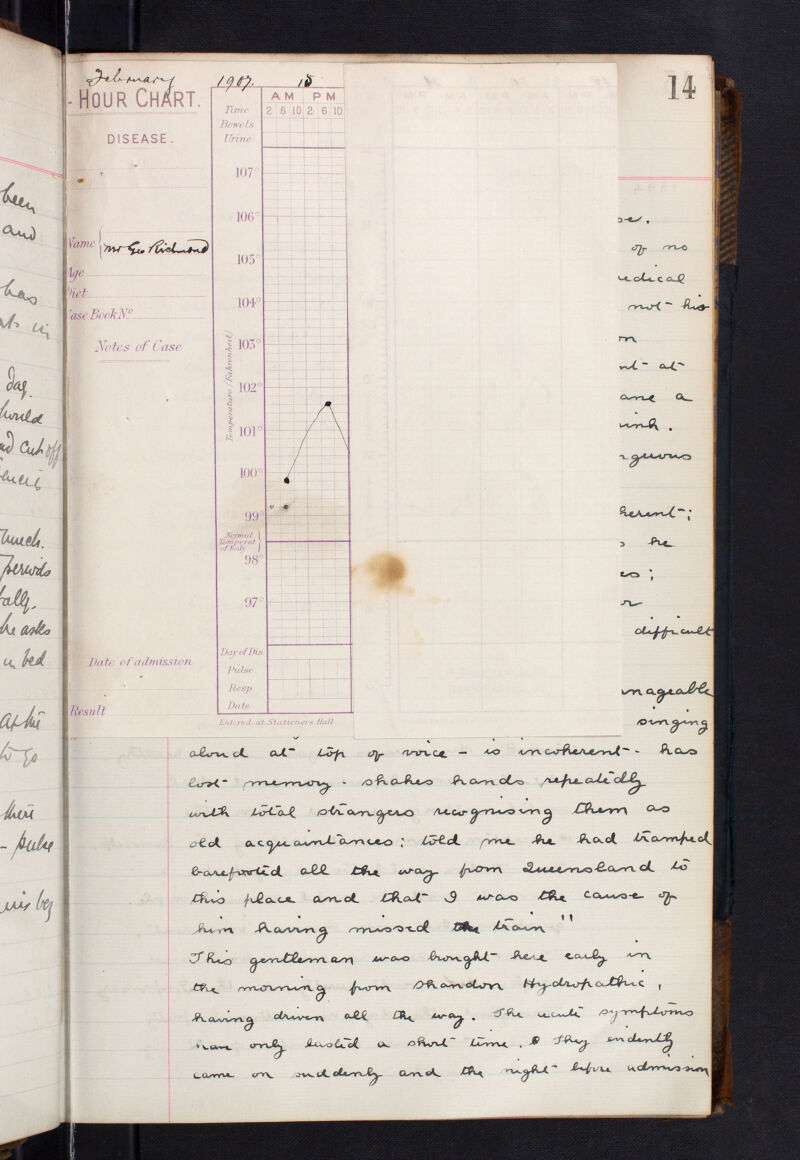 been
and
has
day.
would
and cut off
lunch.
periods
he asks
in bed
At the
to go
there
- pulse
February 1907. 15
- HOUR CHART.
DISEASE.
Name { Mr Geo Richmond
Age
Diet
Case Book No
Notes of Case
Date of admission
Result
AM PM
Time 2 6 10 2 6 10
Bowels
Urine
Temperature (Fahrenheit)
107°
106°
105°
104°
103°
102°
101°
100°
99°
Normal Temperat of body }
98°
97°
Day of Dis.
Pulse
Resp
Date
Entered at Stationers Hall
14
of no
medical
not his
at
ane a
drink.
herent;
he
difficult
unmanageable
singing
aloud at top of voice - is incoherent - has
lost memory - shakes hands repeatedly
with total strangers recognising them as
old acquaintances: told me he had tramped
barefooted all the way from Queensland to
this place and that I was the cause of
him having missed the train"
This gentleman was brought here early in
the morning from Shandon Hydropathic,
having driven all the way. The acute symptoms
have only lasted a short time. They evidently
came on suddenly and the night before admission